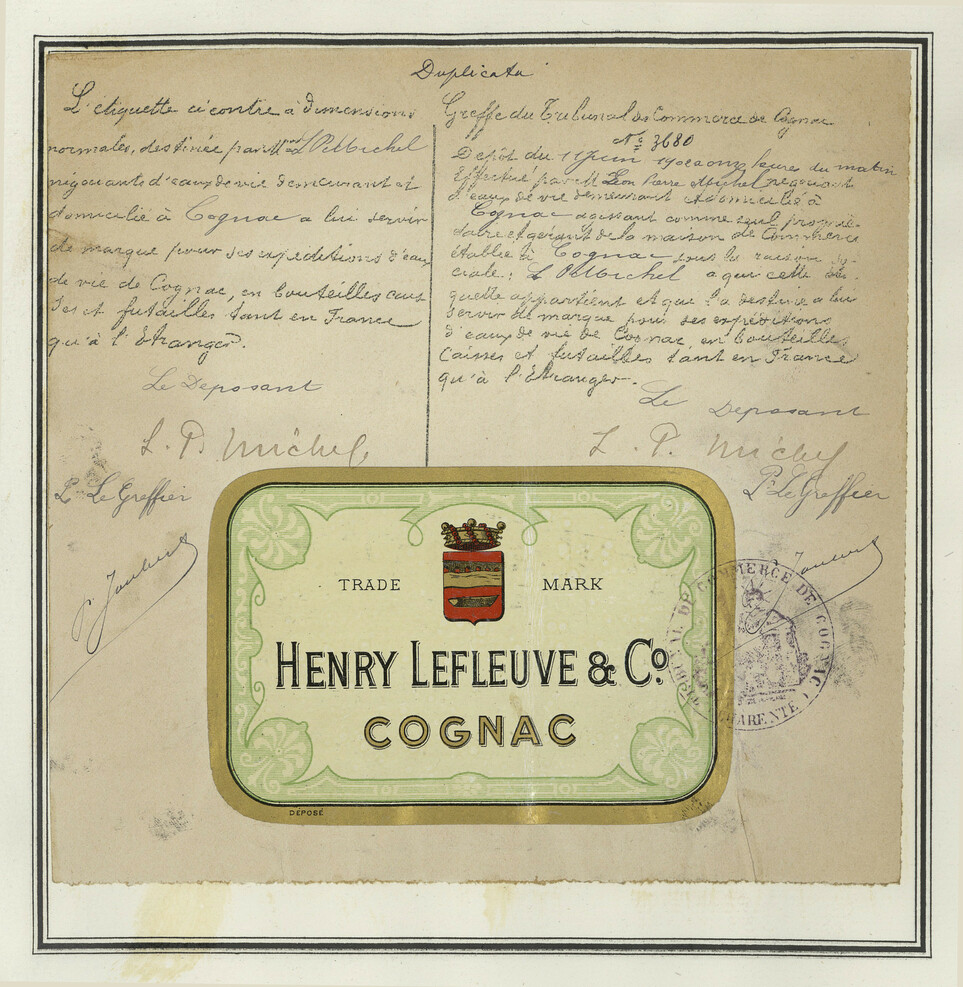 Duplicata
L'étiquette ci contre à dimensions
normales, destinée par L P Michel
négociante d'eaux de vie demeurant et
domicilié à Cognac a lui servir
de marque pour ses expéditions d'eaux
de vie de Cognac, en bouteilles cais
ses et futailles tant en France
qu'à l'Etranger.
Le Deposant
L. P. Michel
P. Le Greffier
Greffe du Tribunal de Commerce de Cognac
N° 3680
Depot du 11 Juin à onze heures du matin
Effectué par M Léon Pierre Michel négociant
d'eaux de vie demeurant et domicilié à
Cognac agissant comme seul proprié-
taire et gérant de la maison de Commerce
établie à Cognac sous la raison so-
ciale: L P Michel a qui cette éti-
quette appartient et qui l'a destine a lui
servir de marque pour ses expéditions
d'eaux de vie de Cognac, en bouteilles
Caisses et futailles tant en France
qu'à l'Etranger.
Le Deposant
L. P. Michel
P. Le Greffier
TRADE MARK
HENRY LEFLEUVE & Co.
COGNAC
DÉPOSÉ
TRIBUNAL DE COMMERCE DE COGNAC
CHARENTE